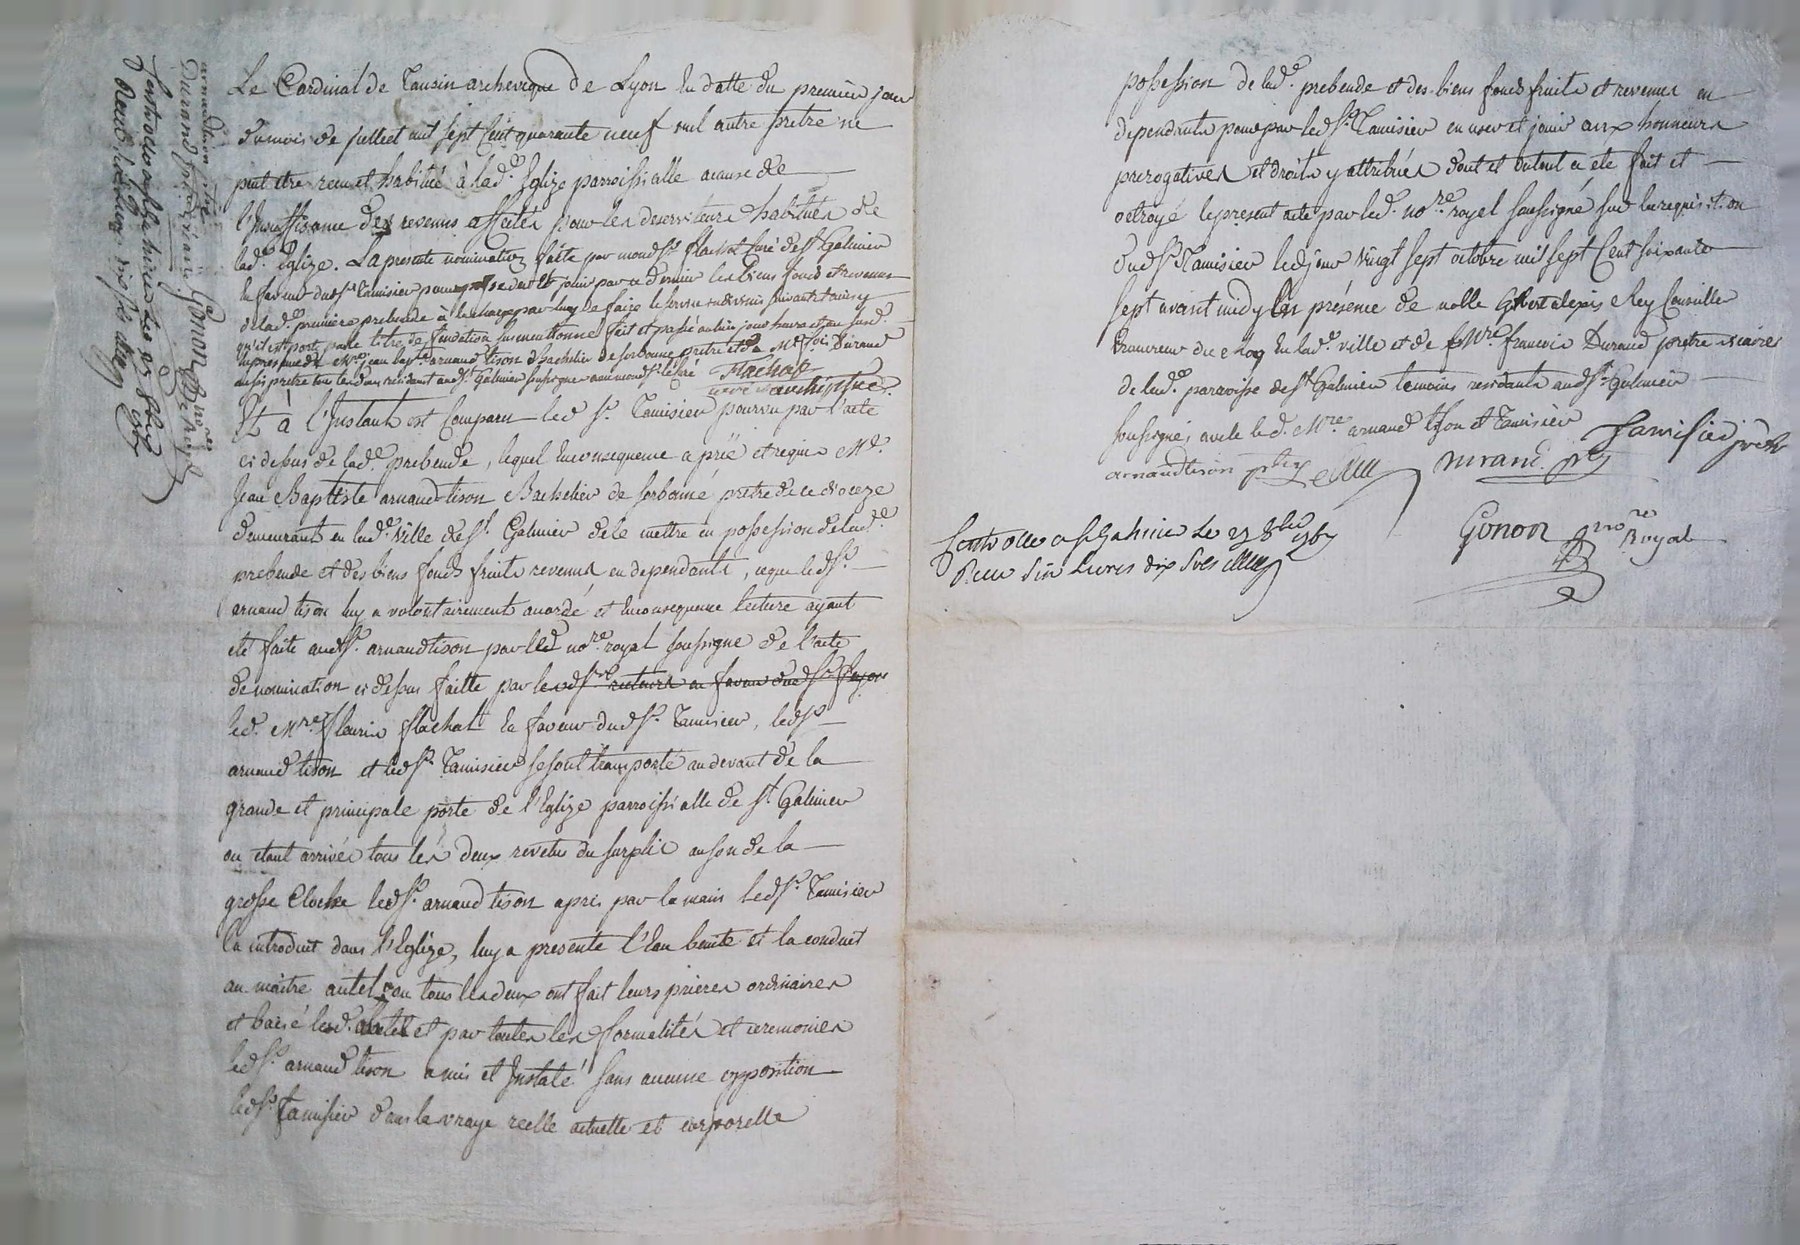 Le Cardinal de Tansin archeveque de Lyon En datte du premier jour
dumois de juillet mil sept Cent quarante neuf nul autre pretre ne
peut etre recu et habitué à lad.e Eglize parroissialle acause de
l'Insuffisance des revenus affectés pour les desserviteurs habitués de
lad.e Eglize. La presente nomination faite par mond.sr flachat Curé de St Galmier
En faveur dud.sr Tamisier pour par ce dernier les biens fonds et revenus
de lad.e premiere prebende à la charge par luy de faire le service
qu'il est porté par le titre de fondation susmentionné fait et passé
En presence de Mre jean bap.te arnaud tison Bachelier de sorbonne pretre et de Mre francois Durand
aussi pretre tous les deux residant aud. St Galmier soussignes avec mond.sr le curé Flachat
curé archiprtre.
Et à l'Instant est Comparu led sr. Tamisier pourvu par l'acte
ci dessus de lad.e prebende, lequel Enconsequence a prié et requis Mre.
Jean Baptiste arnaud tison Bachelier de sorbonne pretre de ce dioceze
demeurant en lad.e Ville de St. Galmier de le mettre en possession de lad.e
prebende et des biens fonds fruits revenus en dependants, ceque led sr.
arnaud tison luy a volontairement acordé et Enconsequence lecture ayant
eté faite aud sr. arnaud tison par led no.re royal soussigné de l'acte
de nomination ci dessus faitte par
led. Mre. fleurie flachat En faveur dud sr. Tamisier, led sr
arnaud tison et led sr. Tamisier se sont transporté au devant de la
grande et principale porte de l'Eglize parroissialle de St. Galmier
ou etant arrivés tous les deux revetus du surplis au son de la
grosse Cloche led sr. arnaud tison a pris par la main led sr. Tamisier
la introduit dans l'Eglize, luy a presenté l'Eau benite et la conduit
au maitre autel ou tous les deux ont fait leurs prieres ordinaires
et baisé led. autel et par toutes les formalités et ceremonies
led sr. arnaud tison a mis et Instalé sans aucune opposition
led sr. Tamisier dans la vraye reelle actuelle et corporelle
possession de lad.e prebende et des biens fonds fruits et revenus en
dependants pour par led sr. Tamisier en user et jouir aux honneurs
prerogatives et droits y attribués dont et dutout a eté fait et
octroyé le present acte par led. no.re royal soussigné sur la requisition
dud sr. Tamisier led jour Vingt sept octobre mil sept Cent soixante
sept avant midy En présence de noble alexis Conseiller
du roy En lad.e ville et de Mre. francois Durand pretre vicaire
de lad.e paroisse de St Galmier temoins residants aud. St. Galmier
soussignés avec led. Mre. arnaud tison et Tamisier
Tamisier prtre
arnaud tison ptre
Durand ptre
Gonon no.re Royal
Controllé a St Galmier Le 29 8bre 1767
Recu Livres dix Sols
arnaud tison ptre
Durand ptre
Gonon no.re Royal
Controllé a St Galmier Le 29 8bre 1767
Recu Livres dix sols